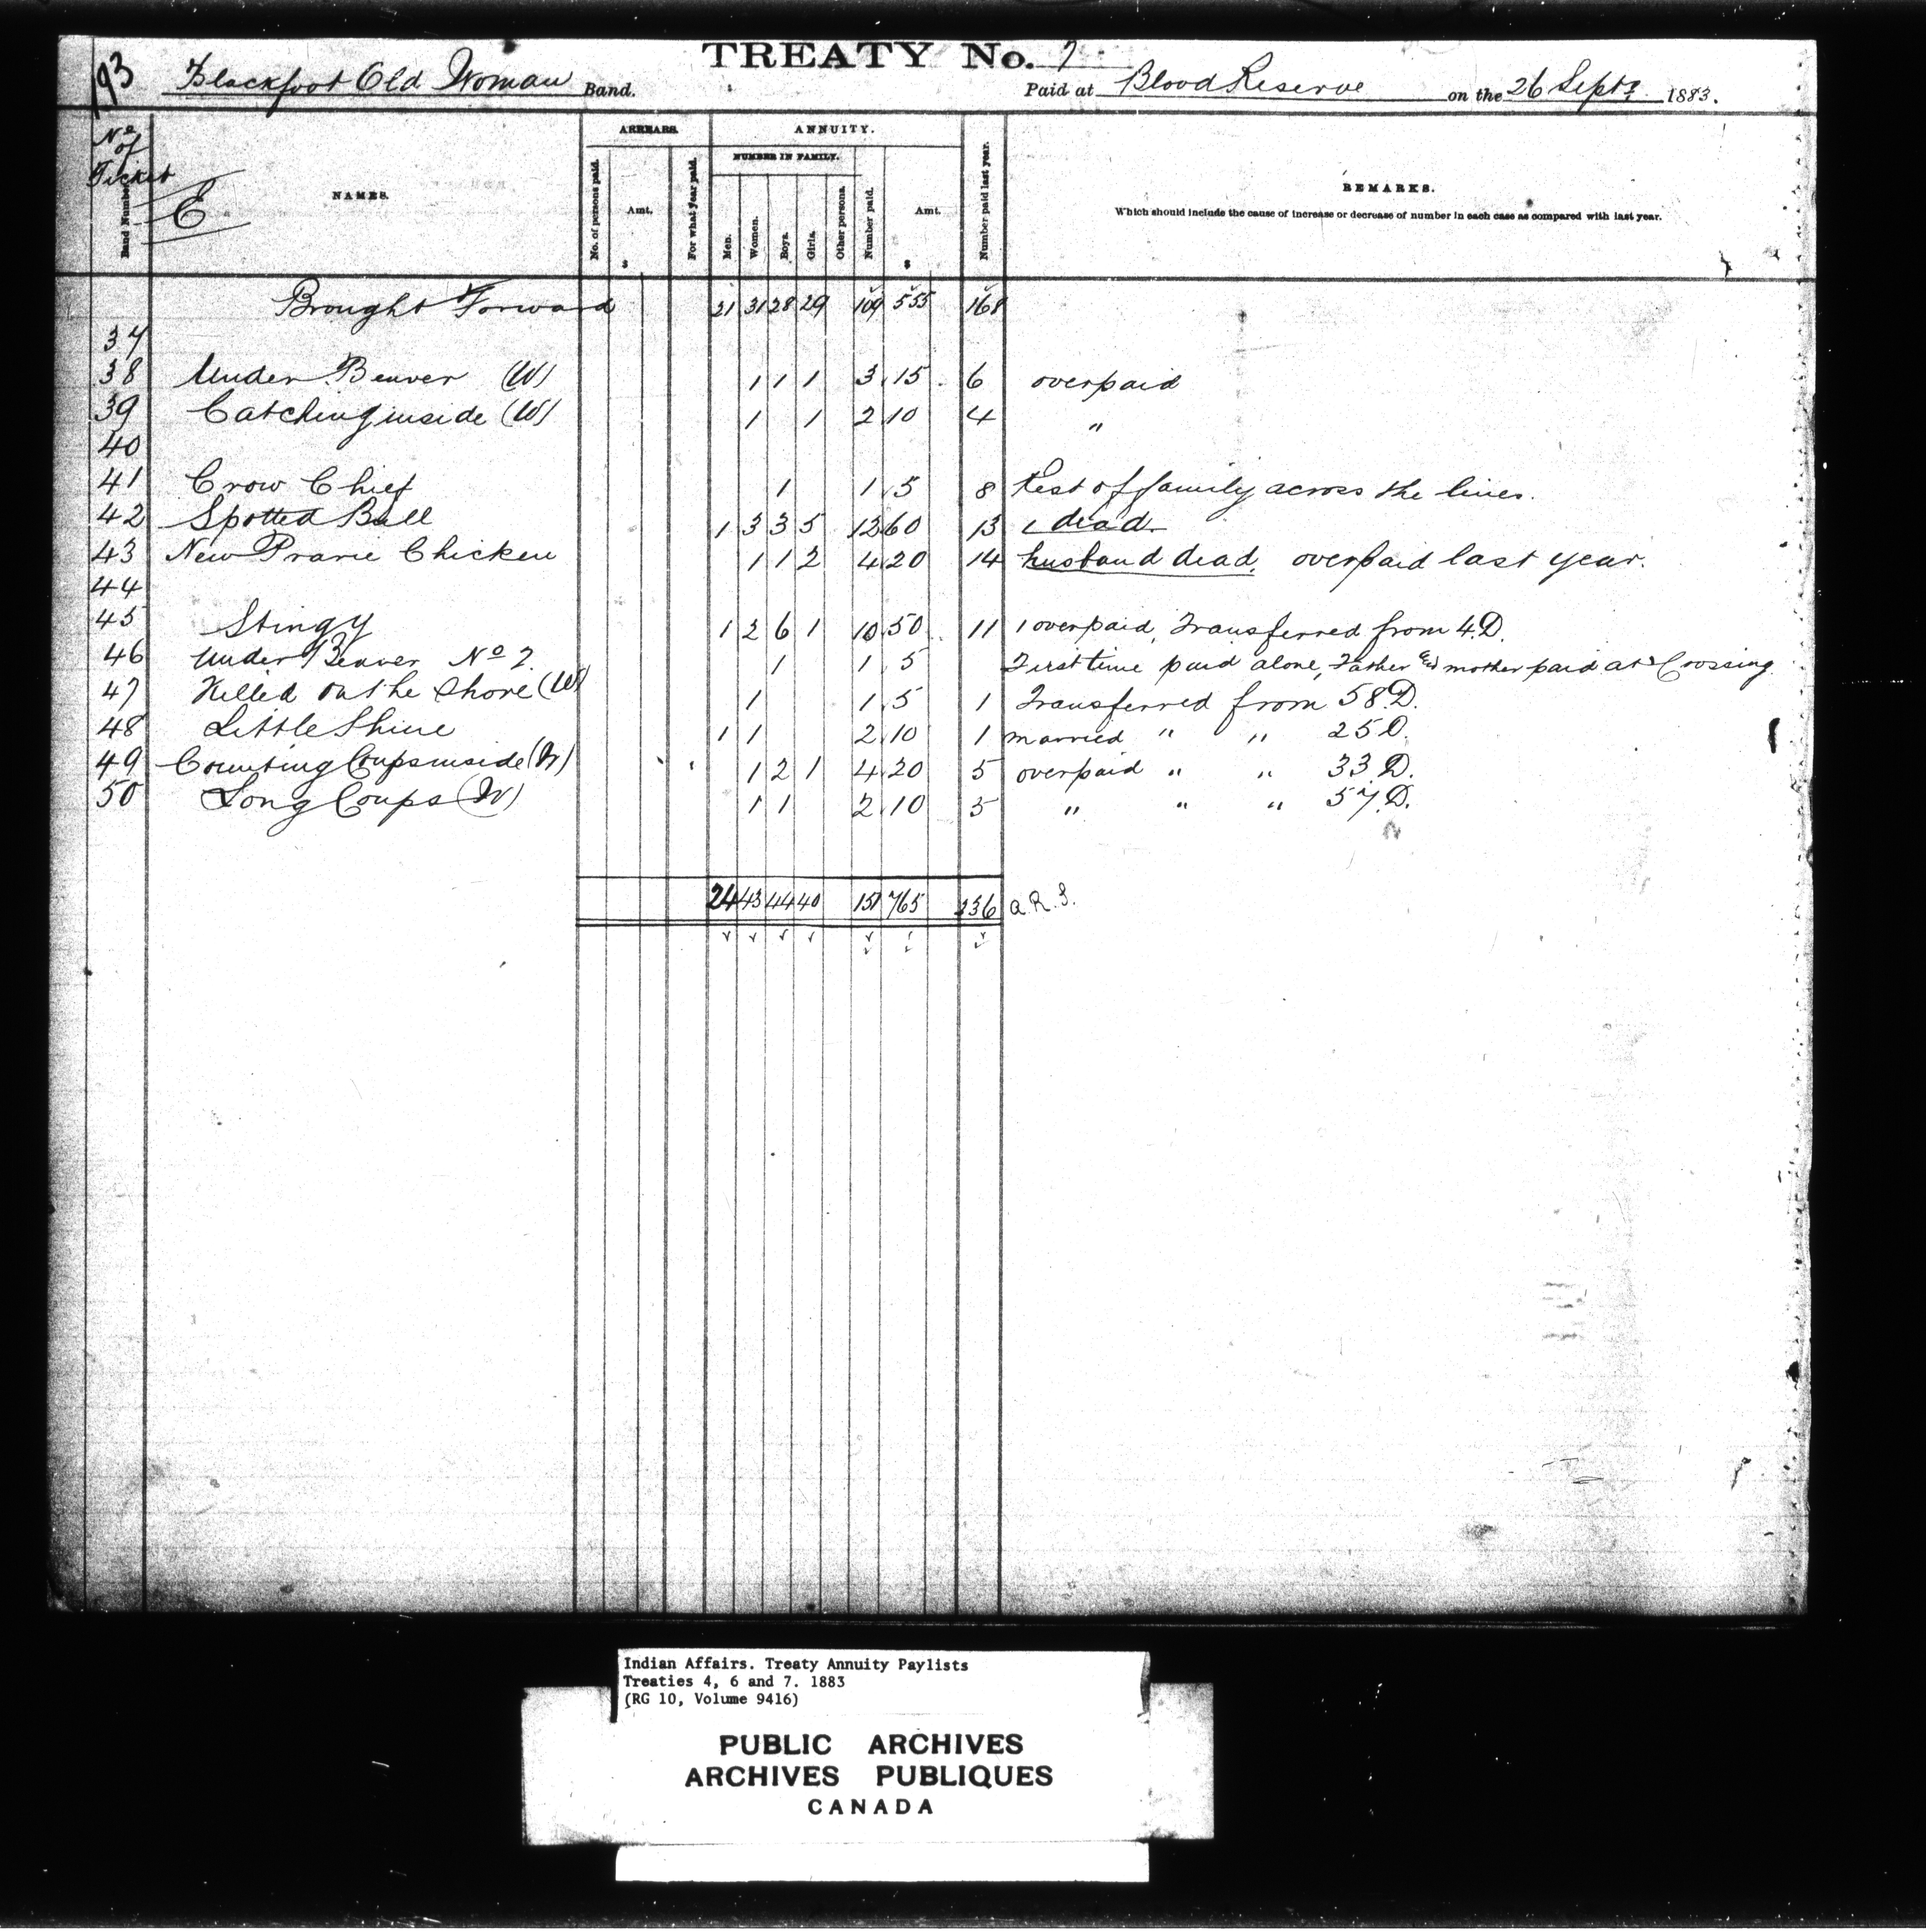 193 Blackfoot Old Woman Band. TREATY No. 7 Paid at Blood Reserve on the 26 Septr 1883.
No of Ticket
Band Number.
E
NAMES.
ARREARS.
No. of persons paid.
Amt.
$
For what year paid.
ANNUITY.
NUMBER IN FAMILY.
Men.
Women.
Boys.
Girls.
Other persons.
Number paid.
Amt.
$
Number paid last year.
REMARKS.
Which should include the cause of increase or decrease of number in each case as compared with last year.
Brought Forward 21 31 28 29 109 555 168
37
38 Under Beaver (W) 1 1 1 3 15 6 overpaid
39 Catching inside (W) 1 1 2 10 4 "
40
41 Crow Chief 1 1 5 8 Rest of family across the lines.
42 Spotted Bull 1 3 3 5 12 60 13 1 dead
43 New Prarie Chicken 1 1 2 4 20 14 husband dead. overpaid last year.
44
45 Stingy 1 2 6 1 10 50 11 1 overpaid, Transferred from 4.D.
46 Under Beaver No 2. 1 1 5 First time paid alone, Father & mother paid at Crossing
47 Killed on the Shore (W) 1 1 5 1 Transferred from 58 D.
48 Little Shine 1 1 2 10 1 married " " 25 D.
49 Counting Coups inside (W) 1 2 1 4 20 5 overpaid " " 33 D.
50 Long Coups (W) 1 1 2 10 5 " " " 57 D.
24 43 44 40 151 765 236 a.R.S.
Indian Affairs. Treaty Annuity Paylists
Treaties 4, 6 and 7. 1883
(RG 10, Volume 9416)
PUBLIC ARCHIVES
ARCHIVES PUBLIQUES
CANADA